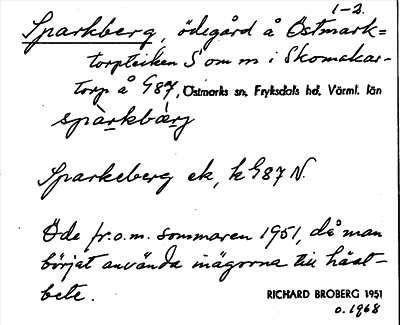 1-2.
Sparkberg, ödegård å Östmark=
torpteiken S om m i Skomakar-
torp å G87, Östmarks sn, Fryksdals hd, Värml. län
spàrkbærj
Sparkeberg ek, k G87 N.
Öde fr.o.m. sommaren 1951, då man
börjat använda inägorna till häst-
bete.
RICHARD BROBERG 1951
o. 1968